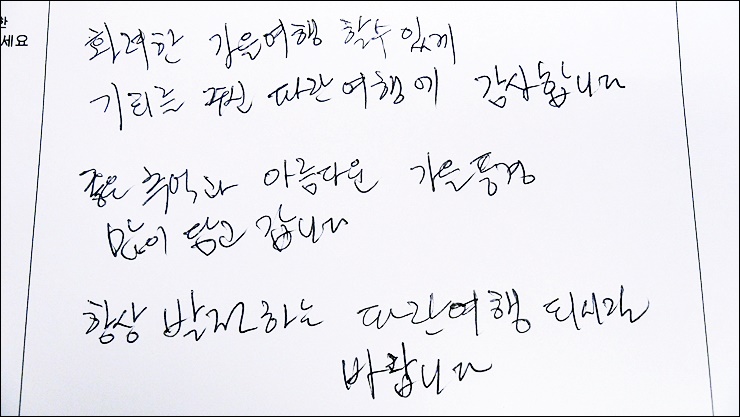 한
세요
화려한 가을여행 할수 있게
기회를 주신 따란여행에 감사합니다
좋은 추억과 아름다운 가을풍경
많이 담고 갑니다
항상 발전하는 따란여행 되시길
바랍니다